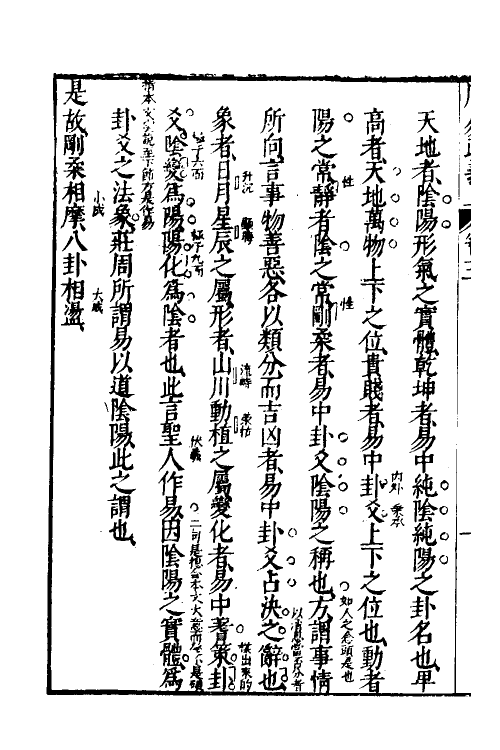 天地者、陰陽形氣之實體、乾坤者、易中純陰純陽之卦名也、卑
高者、天地萬物上下之位、貴賤者、易中卦爻上下之位也、動者
陽之常、靜者陰之常、剛柔者、易中卦爻陰陽之稱也、方、謂事情
所向、言事物善惡、各以類分、而吉凶者、易中卦爻占決之辭也、
象者、日月星辰之屬、形者、山川動植之屬、變化者、易中蓍策卦
爻、陰變爲陽、陽化爲陰者也、此言聖人作易、因陰陽之實體、爲
卦爻之法象、莊周所謂易以道陰陽、此之謂也、
是故、剛柔相摩、八卦相盪、
內外
乘承
性
性
如人之念頭是也
升沉
流峙
榮枯
伏羲
小成
大成